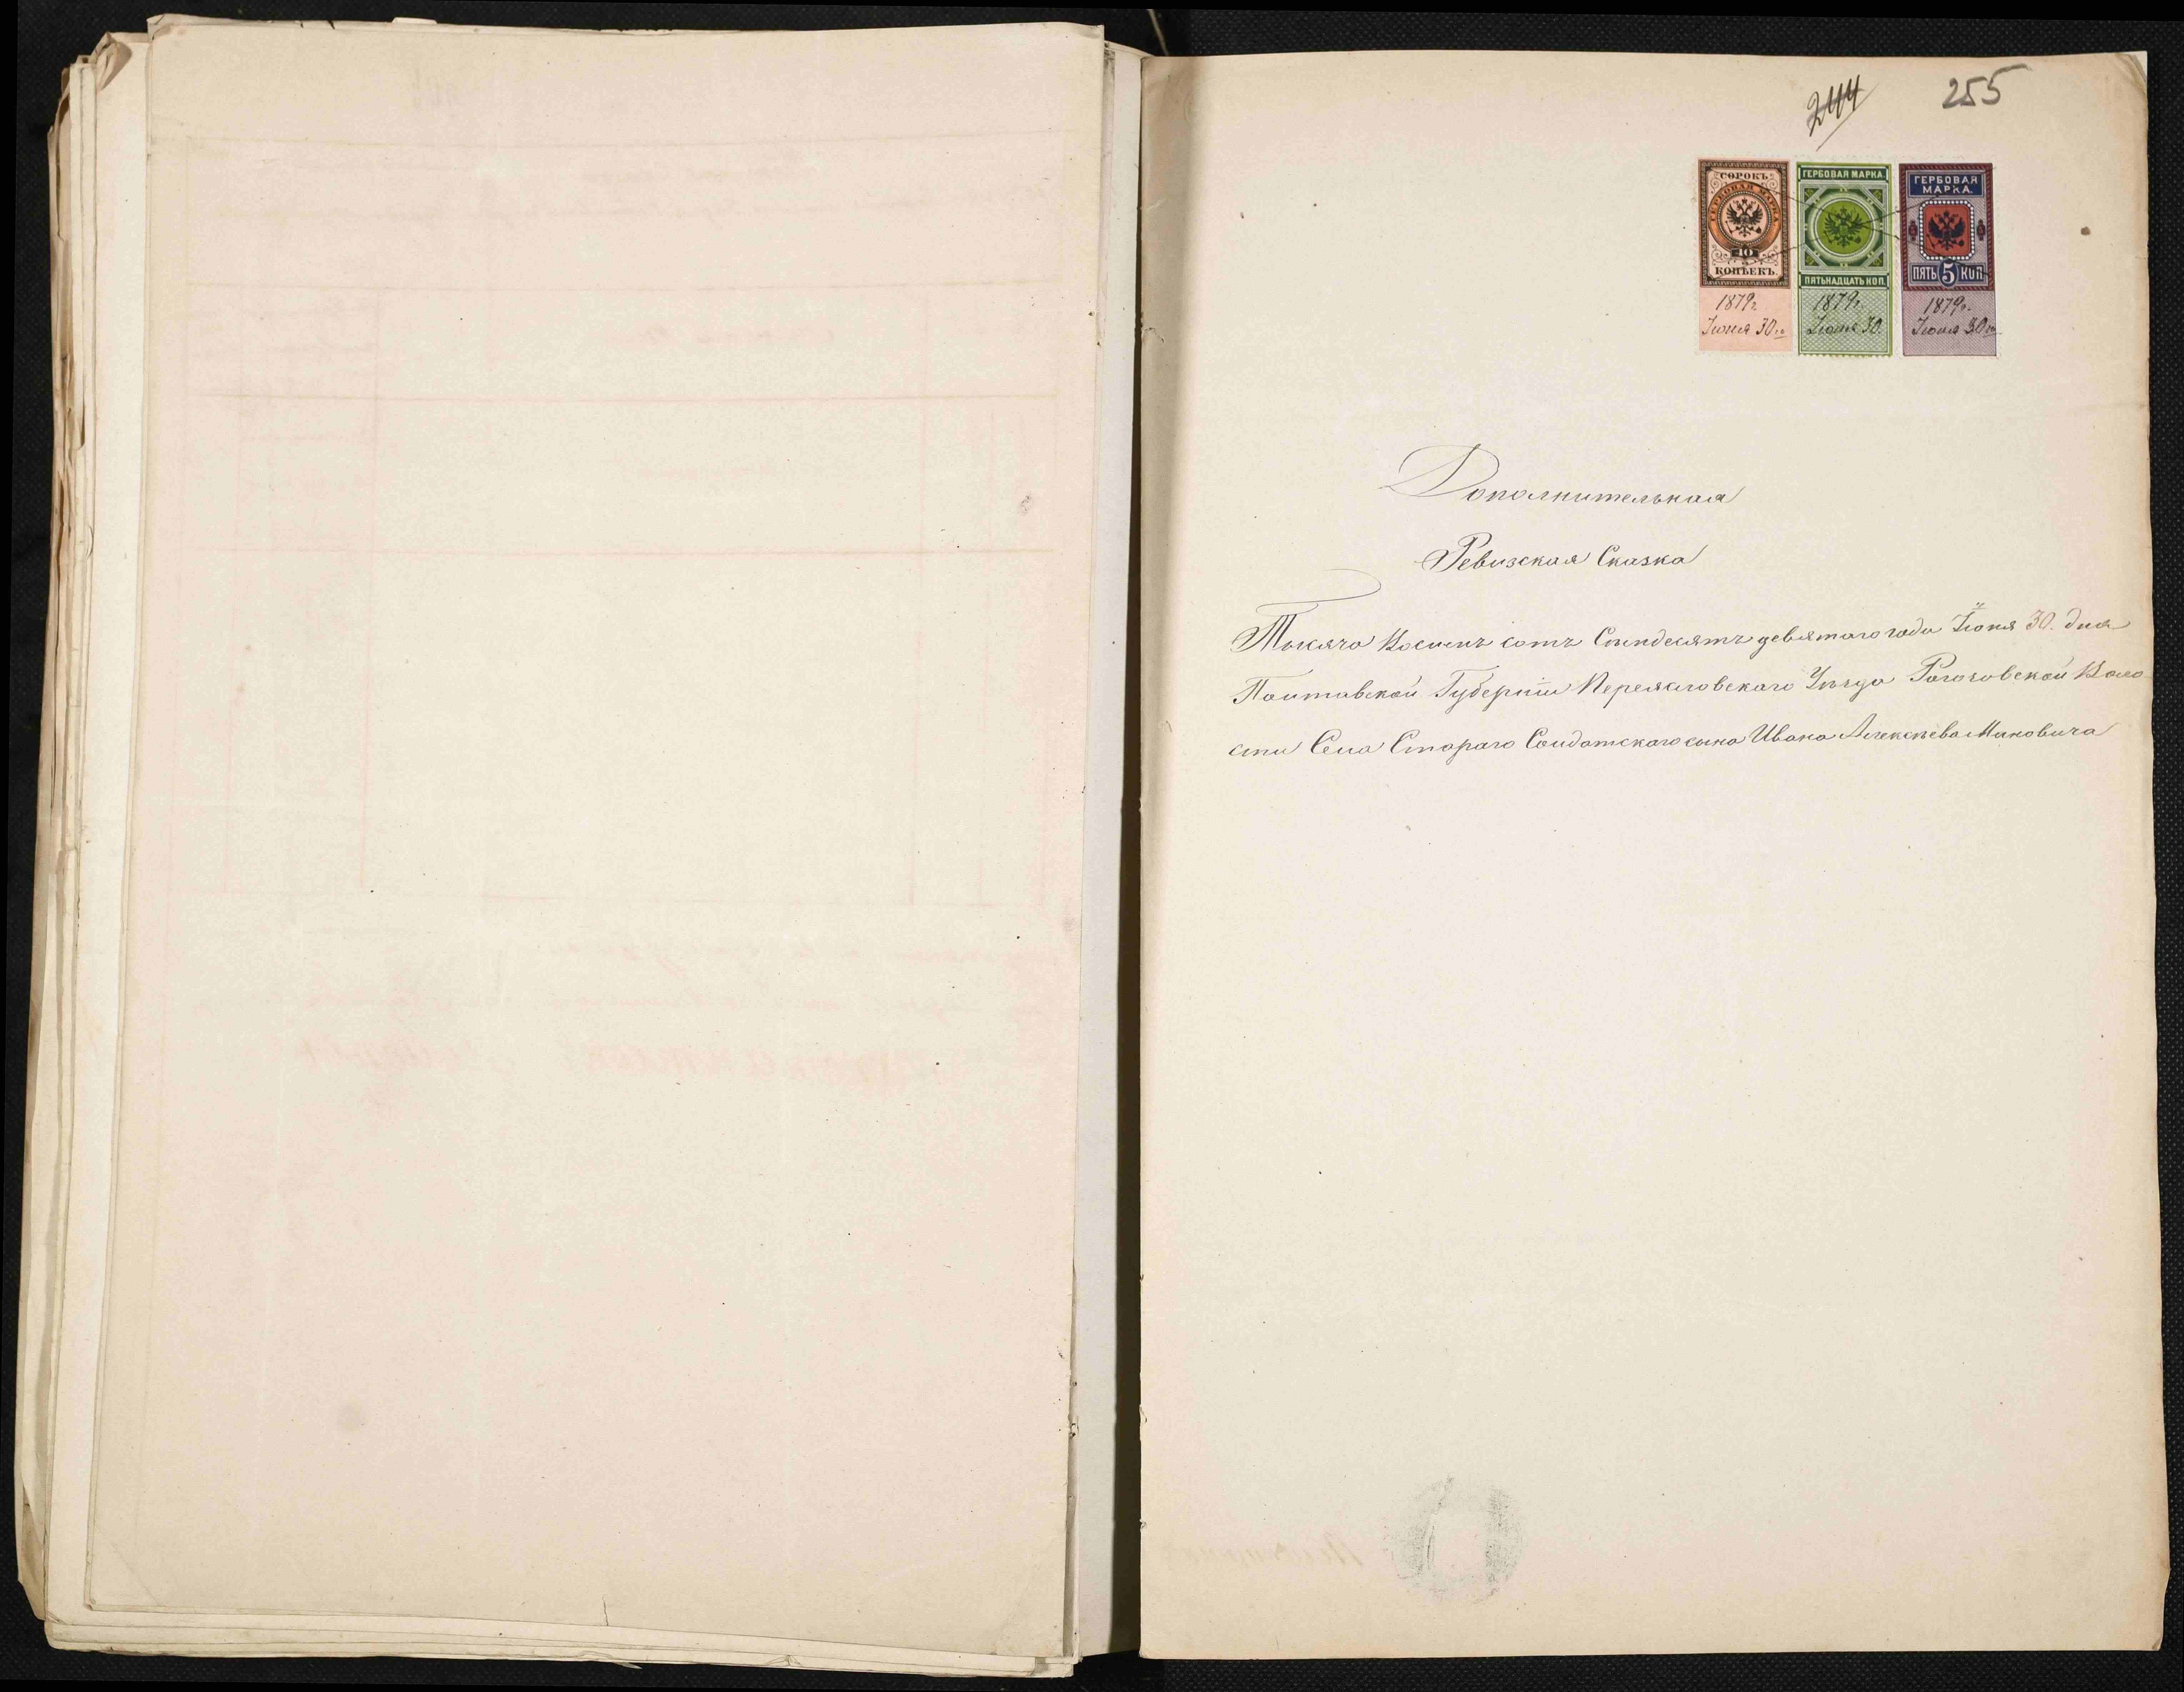 244 255
СОРОКЪ
ГЕРБОВАЯ МАРКА
40
КОПѢЕКЪ.
1879г.
Іюня 30го
ГЕРБОВАЯ МАРКА.
ПЯТЬНАДЦАТЬ КОП.
1879г.
Іюня 30.
ГЕРБОВАЯ
МАРКА.
ПЯТЬ 5 КОП.
1879г.
Іюня 30го
Дополнительная
Ревизская Сказка
Тысяча Восемь сотъ Семдесятъ девятаго года Іюня 30. дня
Полтавской Губерніи Переяславскаго Уѣзда Рогозовской Воло
сти Села Стараго Солдатскаго сына Ивана Алексѣева Миновича